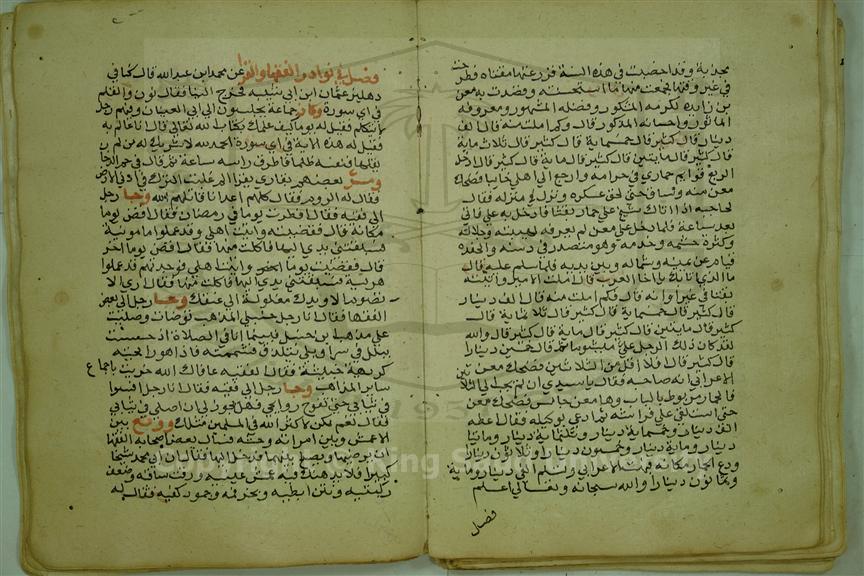 مجدبة وقد اخصبت في هذه السنة فزرعتها مقثاة فطرحت
في غير وقتها فجمعت منها ما استحسنته وقصدت به معن
بن زايده لكرمه المشكور وفضله المشهور ومعروفه
الماثور واحسانه المذكور قال وكم املت منه قال الف
دينار قال كثير قال خمسماية قال كثير قال ثلاث ماية
قال كثير قال مايتين قال كثير قال ماية قال كثير قال ادخل
اربع قوايم حماري في حرامه وارجع الى اهلي خايبا فضحك
معن منه وساق حتى لحق عسكره ونزل في منزله فقال
لحاجبه اذا اتاك شيخ على حمار بقثا فادخل به علي فاتى
بعد ساعة فلما دخل على معن لم يعرفه لهيبته وجلالته
وكثرة حشمه وخدمه وهو متصدر في دسته والحفدة
قيام عن يمينه وشماله وبين يديه فلما سلم عليه قال
ما الذي اتا بك يا اخا العرب قال املت الامير واتيته
بقثا في غير اوانه قال فكم املت منه قال الف دينار
قال كثير قال خمسماية قال كثير قال ثلاثماية قال
كثير قال مايتين قال كثير قال ماية قال كثير قال والله
لقد كان ذلك الرجل علي ميشوما ثم قال خمسين دينارا
قال كثير قال فلا اقل من الثلاثين فضحك معن فعلم
الاعرابي انه صاحبه فقال يا سيدي ان لم تجب الى الثلاثين
فالحمار مربوط بالباب وها معن جالس فضحك معن
حتى استلقى على فراشه ثم دعا بوكيله فقال اعطه
الف دينار وخمسماية دينار وثلثماية دينار ومايتا
دينار وماية دينار وخمسون دينارا وثلاثون دينارا
ودع الحمار مكانه فبهت الاعرابي وتسلم الفي دينار وماية
وثمانون دينارا والله سبحانه وتعالى اعلم
فصل
فصل في نوادر الفقها والقرا عن محمد ابن عبد الله قال كنا في
دهليز عثمان ابن ابي شيبة فخرج الينا فقال نون والقلم
في اي سورة وكان جماعة يجلسون الى ابي العينان وفيهم رجل
لا يتكلم فقيل له يوما كيف علمك بكتاب الله تعالى قال انا عالم به
فقيل له هذه الاية في اي سورة الحمد لله لا شريك له من لم
يقلها فنفسه ظلما فاطرق راسه ساعة ثم قال في حم الدخان
ومر بعضهم بقاري يقرا الم غلبت الترك في ادنى الارض
فقال له الروم فقال كلهم اعدانا قاتلهم الله وجا رجل
الى فقيه فقال افطرت يوما في رمضان فقال اقض يوما
مكانه قال فقضيته واتيت اهلي وقد عملوا مامونية
فسبقتني يدي اليها فاكلت منها فقال اقض يوما اخر
قال فقضيت يوما اخر واتيت اهلي فوجدتهم قد عملوا
هريسة فسبقتني يدي اليها فاكلت منها فقال ارى لا
تصوم الا ويدك مغلولة الى عنقك وجا رجل الى بعض
الفقها فقال انا رجل حنبلي المذهب توضات وصليت
على مذهب ابن حنبل فبينما انا في الصلاة اذ حسست
ببلل في سراويلي يتلزق فشممته فاذا هو رايحته
كريهة خبيثة فقال الفقيه عافاك الله خريت باجماع
ساير المذاهب وجا رجل الى فقيه فقال انا رجل افسوا
في ثيابي حتى تفوح روايحي فهل يجوز لي ان اصلي في ثيابي
فقال نعم لكن لا كثر الله في المسلمين مثلك ووقع بين
الاعمش وبين امراته وحشة فسال بعض اصحابه الفقها
ان يرضيها ويصلح بينهما فدخل اليها فقال ان ابي محمد شيخا
كبيرا فلا يزهدنك فيه عمش عينيه ورقت ساقه وضعف
ركبتيه ونتن ابطيه وبخر فمه وجمود كفيه فقال له